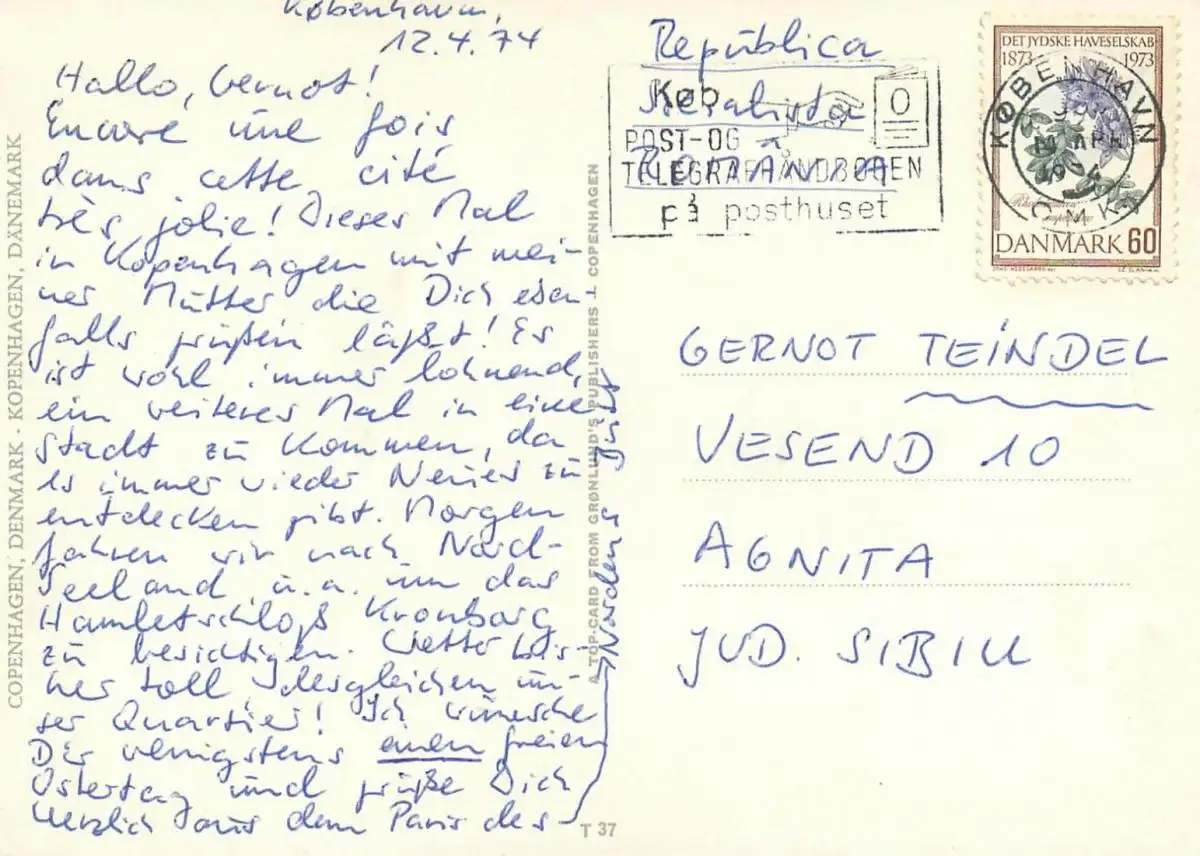 København,
12.4.74
Hallo, Gernot!
Encore une fois
dans cette cité
très jolie! Dieses Mal
in Kopenhagen mit mei-
ner Mutter die Dich eben-
falls grüßen läßt! Es
ist wohl immer lohnend,
ein weiteres Mal in eine
Stadt zu kommen, da
es immer wieder Neues zu
entdecken gibt. Morgen
fahren wir nach Nord-
seeland, u.a. um das
Hamletschloß Kronborg
zu besichtigen. Wetter bis-
her toll, desgleichen un-
ser Quartier! Ich wünsche
Dir wenigstens einen freien
Ostertag und grüße Dich
herzlich aus dem Paris des
Nordens
República
Socialista
ROMÂNIA
Køb
POST-OG
TELEGRAFHÅNDBOGEN
på posthuset
DET JYDSKE HAVESELSKAB
1873 1973
DANMARK 60
KØBENHAVN
GERNOT TEINDEL
VESEND 10
AGNITA
JUD. SIBIU
COPENHAGEN, DENMARK - KOPENHAGEN, DANEMARK
A TOP-CARD FROM GRØNLUND'S PUBLISHERS J. COPENHAGEN
T 37